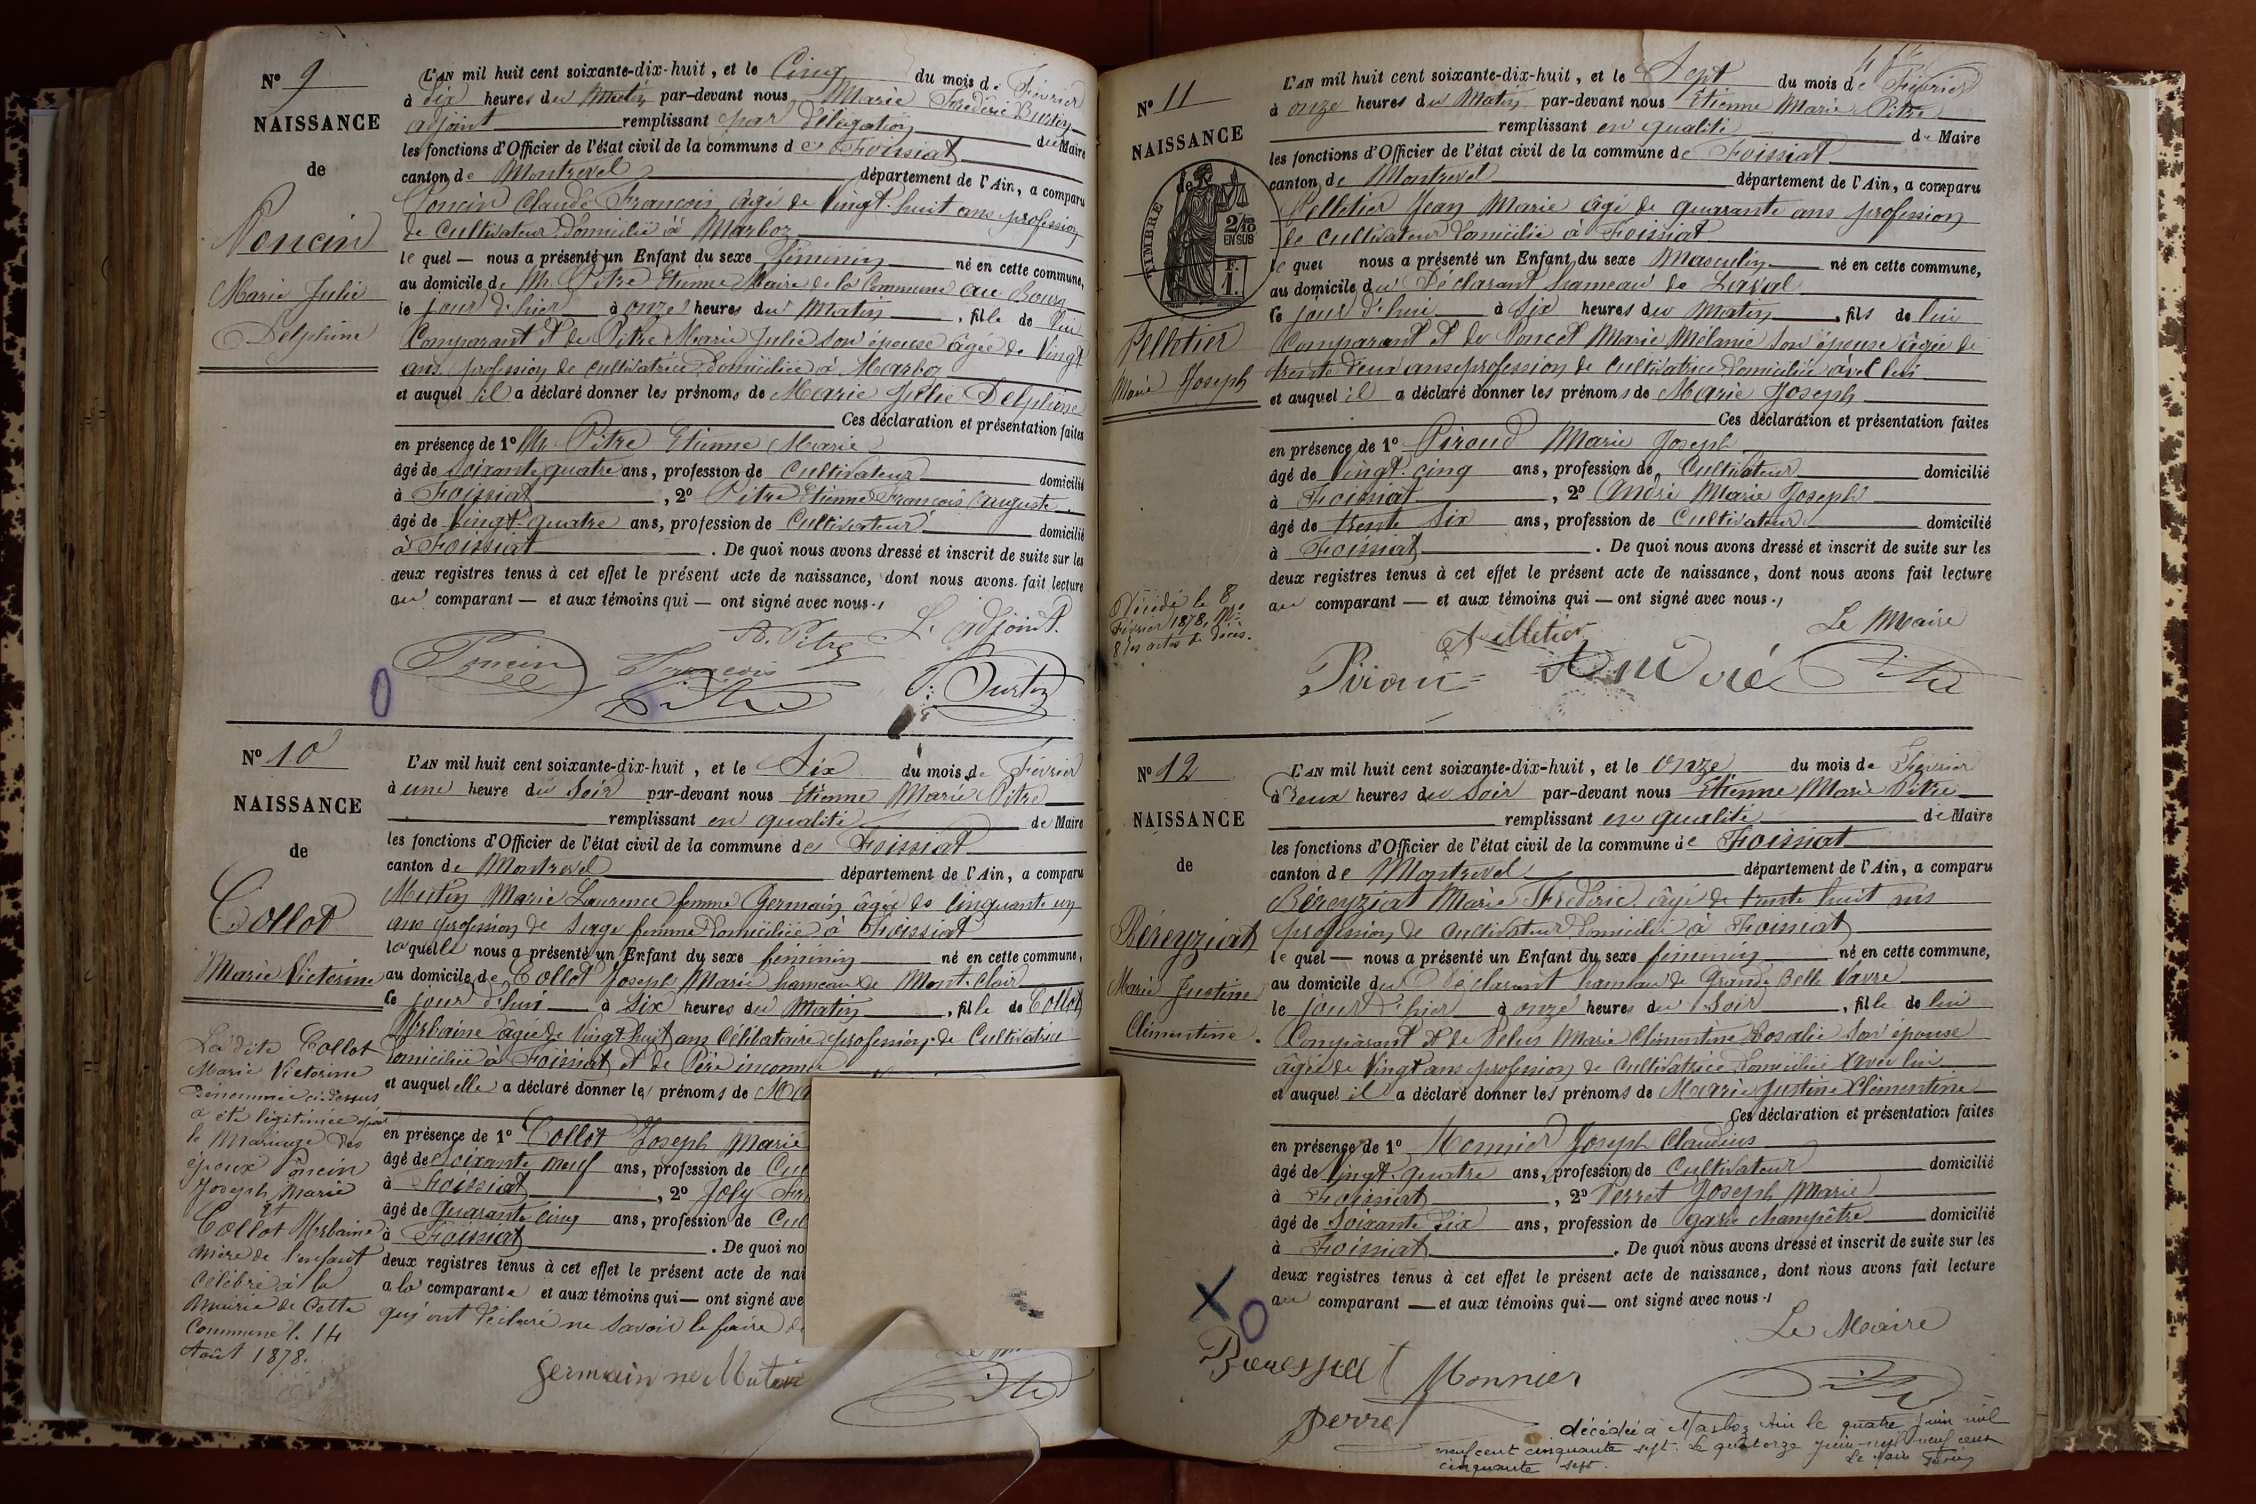 N° 9
NAISSANCE
de
Poncin
Marie Julie
Delphine
L'AN mil huit cent soixante-dix-huit, et le Cinq du mois de Février
à Dix heures du Matin par-devant nous Marie Frédéric Burtin
adjoint remplissant par délégation du Maire
les fonctions d'Officier de l'état civil de la commune de Foissiat
canton de Montrevel département de l'Ain, a comparu
Poncin Claude François, âgé de Vingt-huit ans profession
de Cultivateur domicilié à Marboz
le quel — nous a présenté un Enfant du sexe féminin né en cette commune,
au domicile de Mr Pitre Etienne Maire de la Commune au Bourg
le jour d'hier à onze heures du Matin, fille de lui
Comparant et de Pitre Marie Julie son épouse âgée de Vingt
ans profession de cultivatrice domiciliée à Marboz
et auquel il a déclaré donner les prénoms de Marie Julie Delphine
Ces déclaration et présentation faites
en présence de 1° Mr Pitre Etienne Marie
âgé de soixante quatre ans, profession de Cultivateur domicilié
à Foissiat, 2° Pitre Etienne François Auguste
âgé de Vingt-quatre ans, profession de Cultivateur domicilié
à Foissiat. De quoi nous avons dressé et inscrit de suite sur les
deux registres tenus à cet effet le présent acte de naissance, dont nous avons fait lecture
au comparant — et aux témoins qui — ont signé avec nous.
L'adjoint
Poncin François Pitre Burtin
N° 10
NAISSANCE
de
Collot
Marie Victorine
La dite Collot
Marie Victorine
dénommée ci-dessus
a été légitimée par
le Mariage des
époux Poncin
Joseph Marie
et
Collot Urbaine
mère de l'enfant
célébré à la
Mairie de Cette
Commune l. 14
Août 1878.
L'AN mil huit cent soixante-dix-huit, et le Six du mois de Février
à une heure du Soir par-devant nous Etienne Marie Pitre
remplissant en qualité de Maire
les fonctions d'Officier de l'état civil de la commune de Foissiat
canton de Montrevel département de l'Ain, a comparu
Mutin Marie Laurence femme Germain, âgée de Cinquante un
ans profession de Sage femme domiciliée à Foissiat
laquelle nous a présenté un Enfant du sexe féminin né en cette commune,
au domicile de Collot Joseph Marie hameau de Mont-Clair
le jour d'hui à Six heures du Matin, fille de Collot
Urbaine âgée de Vingt huit ans Célibataire profession de Cultivatrice
domiciliée à Foissiat et de Père inconnu
et auquel elle a déclaré donner les prénoms de
en présence de 1° Collot Joseph Marie
âgé de soixante neuf ans, profession de Cul
à Foissiat, 2° Joly
âgé de Quarante cinq ans, profession de Cul
à Foissiat. De quoi no
deux registres tenus à cet effet le présent acte de nai
a la comparante et aux témoins qui — ont signé ave
qui ont déclaré ne savoir le faire de
Germain né Mutin
Pitre
N° 11
NAISSANCE
de
TIMBRE
2/10
EN SUS
F.
1.
Pelletier
Marie Joseph
Décédé le 8
Février 1878, N°
8 des actes de décès.
L'AN mil huit cent soixante-dix-huit, et le Sept du mois de Février
à onze heures du Matin par-devant nous Etienne Marie Pitre
remplissant en qualité de Maire
les fonctions d'Officier de l'état civil de la commune de Foissiat
canton de Montrevel département de l'Ain, a comparu
Pelletier Jean Marie âgé de quarante ans profession
de cultivateur domicilié à Foissiat
le quel nous a présenté un Enfant du sexe Masculin né en cette commune,
au domicile du Déclarant hameau de Laval
le jour d'hui à Six heures du Matin, fils de lui
Comparant et de Poncet Marie Mélanie son épouse âgée de
trente deux ans profession de cultivatrice domiciliée avec lui
et auquel il a déclaré donner les prénoms de Marie Joseph
Ces déclaration et présentation faites
en présence de 1° Piroud Marie Joseph
âgé de Vingt-cinq ans, profession de Cultivateur domicilié
à Foissiat, 2° André Marie Joseph
âgé de trente six ans, profession de Cultivateur domicilié
à Foissiat. De quoi nous avons dressé et inscrit de suite sur les
deux registres tenus à cet effet le présent acte de naissance, dont nous avons fait lecture
au comparant — et aux témoins qui — ont signé avec nous.
Pelletier Le Maire
André Pitre
N° 12
NAISSANCE
de
Béreyziat
Marie Justine
Clémentine.
L'AN mil huit cent soixante-dix-huit, et le onze du mois de Février
à Deux heures du Soir par-devant nous Etienne Marie Pitre
remplissant en qualité de Maire
les fonctions d'Officier de l'état civil de la commune de Foissiat
canton de Montrevel département de l'Ain, a comparu
Béreyziat Marie Frédéric, âgé de trente huit ans
profession de cultivateur domicilié à Foissiat
le quel — nous a présenté un Enfant du sexe féminin né en cette commune,
au domicile du Déclarant hameau de Grande Belle Vavre
le jour d'hier à onze heures du Soir, fille de lui
Comparant et de Marie Clémentine Rosalie son épouse
âgée de Vingt ans profession de Cultivatrice domiciliée avec lui
et auquel il a déclaré donner les prénoms de Marie Justine Clémentine
Ces déclaration et présentation faites
en présence de 1° Monnier Joseph Claudius
âgé de Vingt-quatre ans, profession de Cultivateur domicilié
à Foissiat, 2° Perret Joseph Marie
âgé de Soixante Dix ans, profession de garde champêtre domicilié
à Foissiat. De quoi nous avons dressé et inscrit de suite sur les
deux registres tenus à cet effet le présent acte de naissance, dont nous avons fait lecture
au comparant — et aux témoins qui — ont signé avec nous.
Le Maire
Monnier Pitre
Perret
décédée à Marboz Ain le quatre juin mil
neuf cent cinquante sept. Le quatorze juin mil neuf cent
cinquante sept. Le Maire